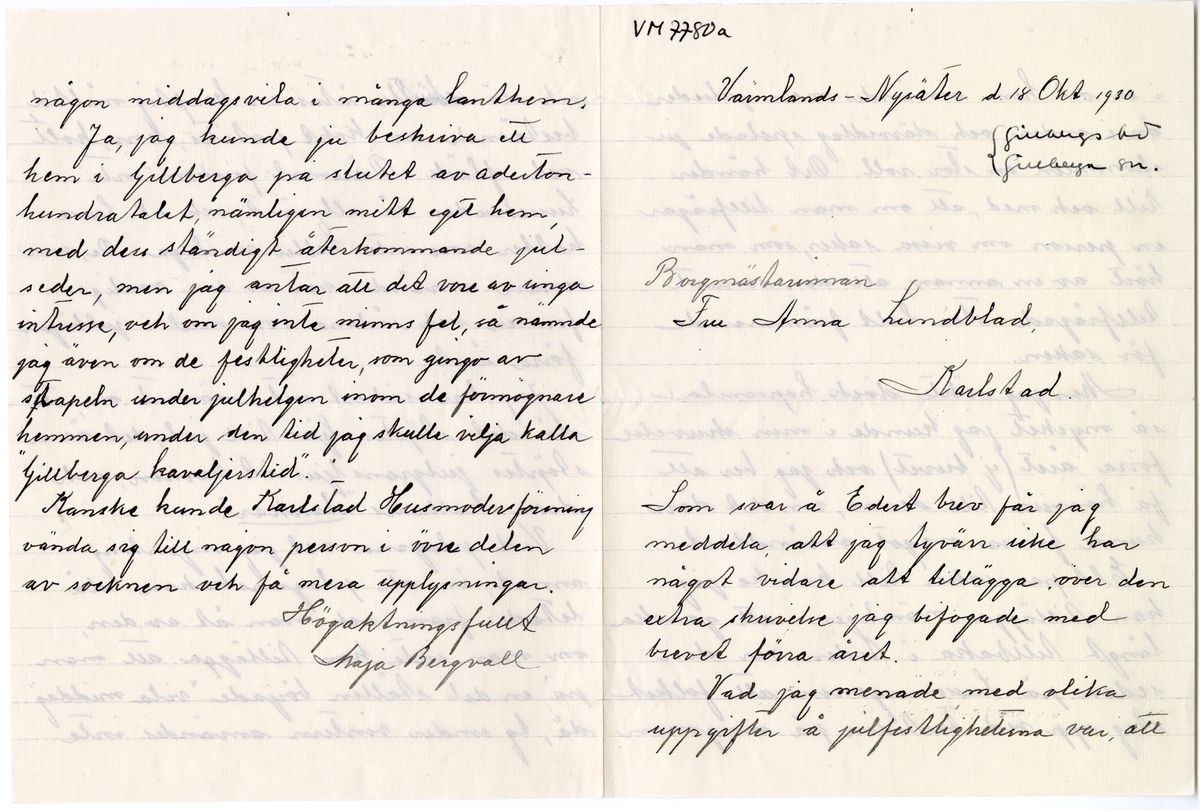 VM 7780a
Värmlands-Nysäter d. 18 Okt 1930
Gillbergs hd
Gillberga sn.
Borgmästarinnan
Fru Anna Lundblad,
Karlstad.
Som svar å Edert brev får jag
meddela, att jag tyvärr icke har
något vidare att tillägga över den
extra skrivelse jag bifogade med
brevet förra året.
Vad jag menade med olika
uppgifter å julfestligheterna var, att
någon middagsvila i många lanthem.
Ja, jag kunde ju beskriva ett
hem i Gillberga på slutet av aderton-
hundratalet, nämligen mitt eget hem,
med dess ständigt återkommande jul-
seder, men jag antar att det vore av inga
intresse, och om jag inte minns fel, så nämnde
jag även om de festligheter, som gingo av
stapeln under julhelgen inom de förmögnare
hemmen, under den tid jag skulle vilja kalla
"Gillberga kavaljerstid".
Kanske kunde Karlstad Husmodersförening
vända sig till någon person i övre delen
av socknen och få mera upplysningar.
Högaktningsfullt
Maja Bergvall